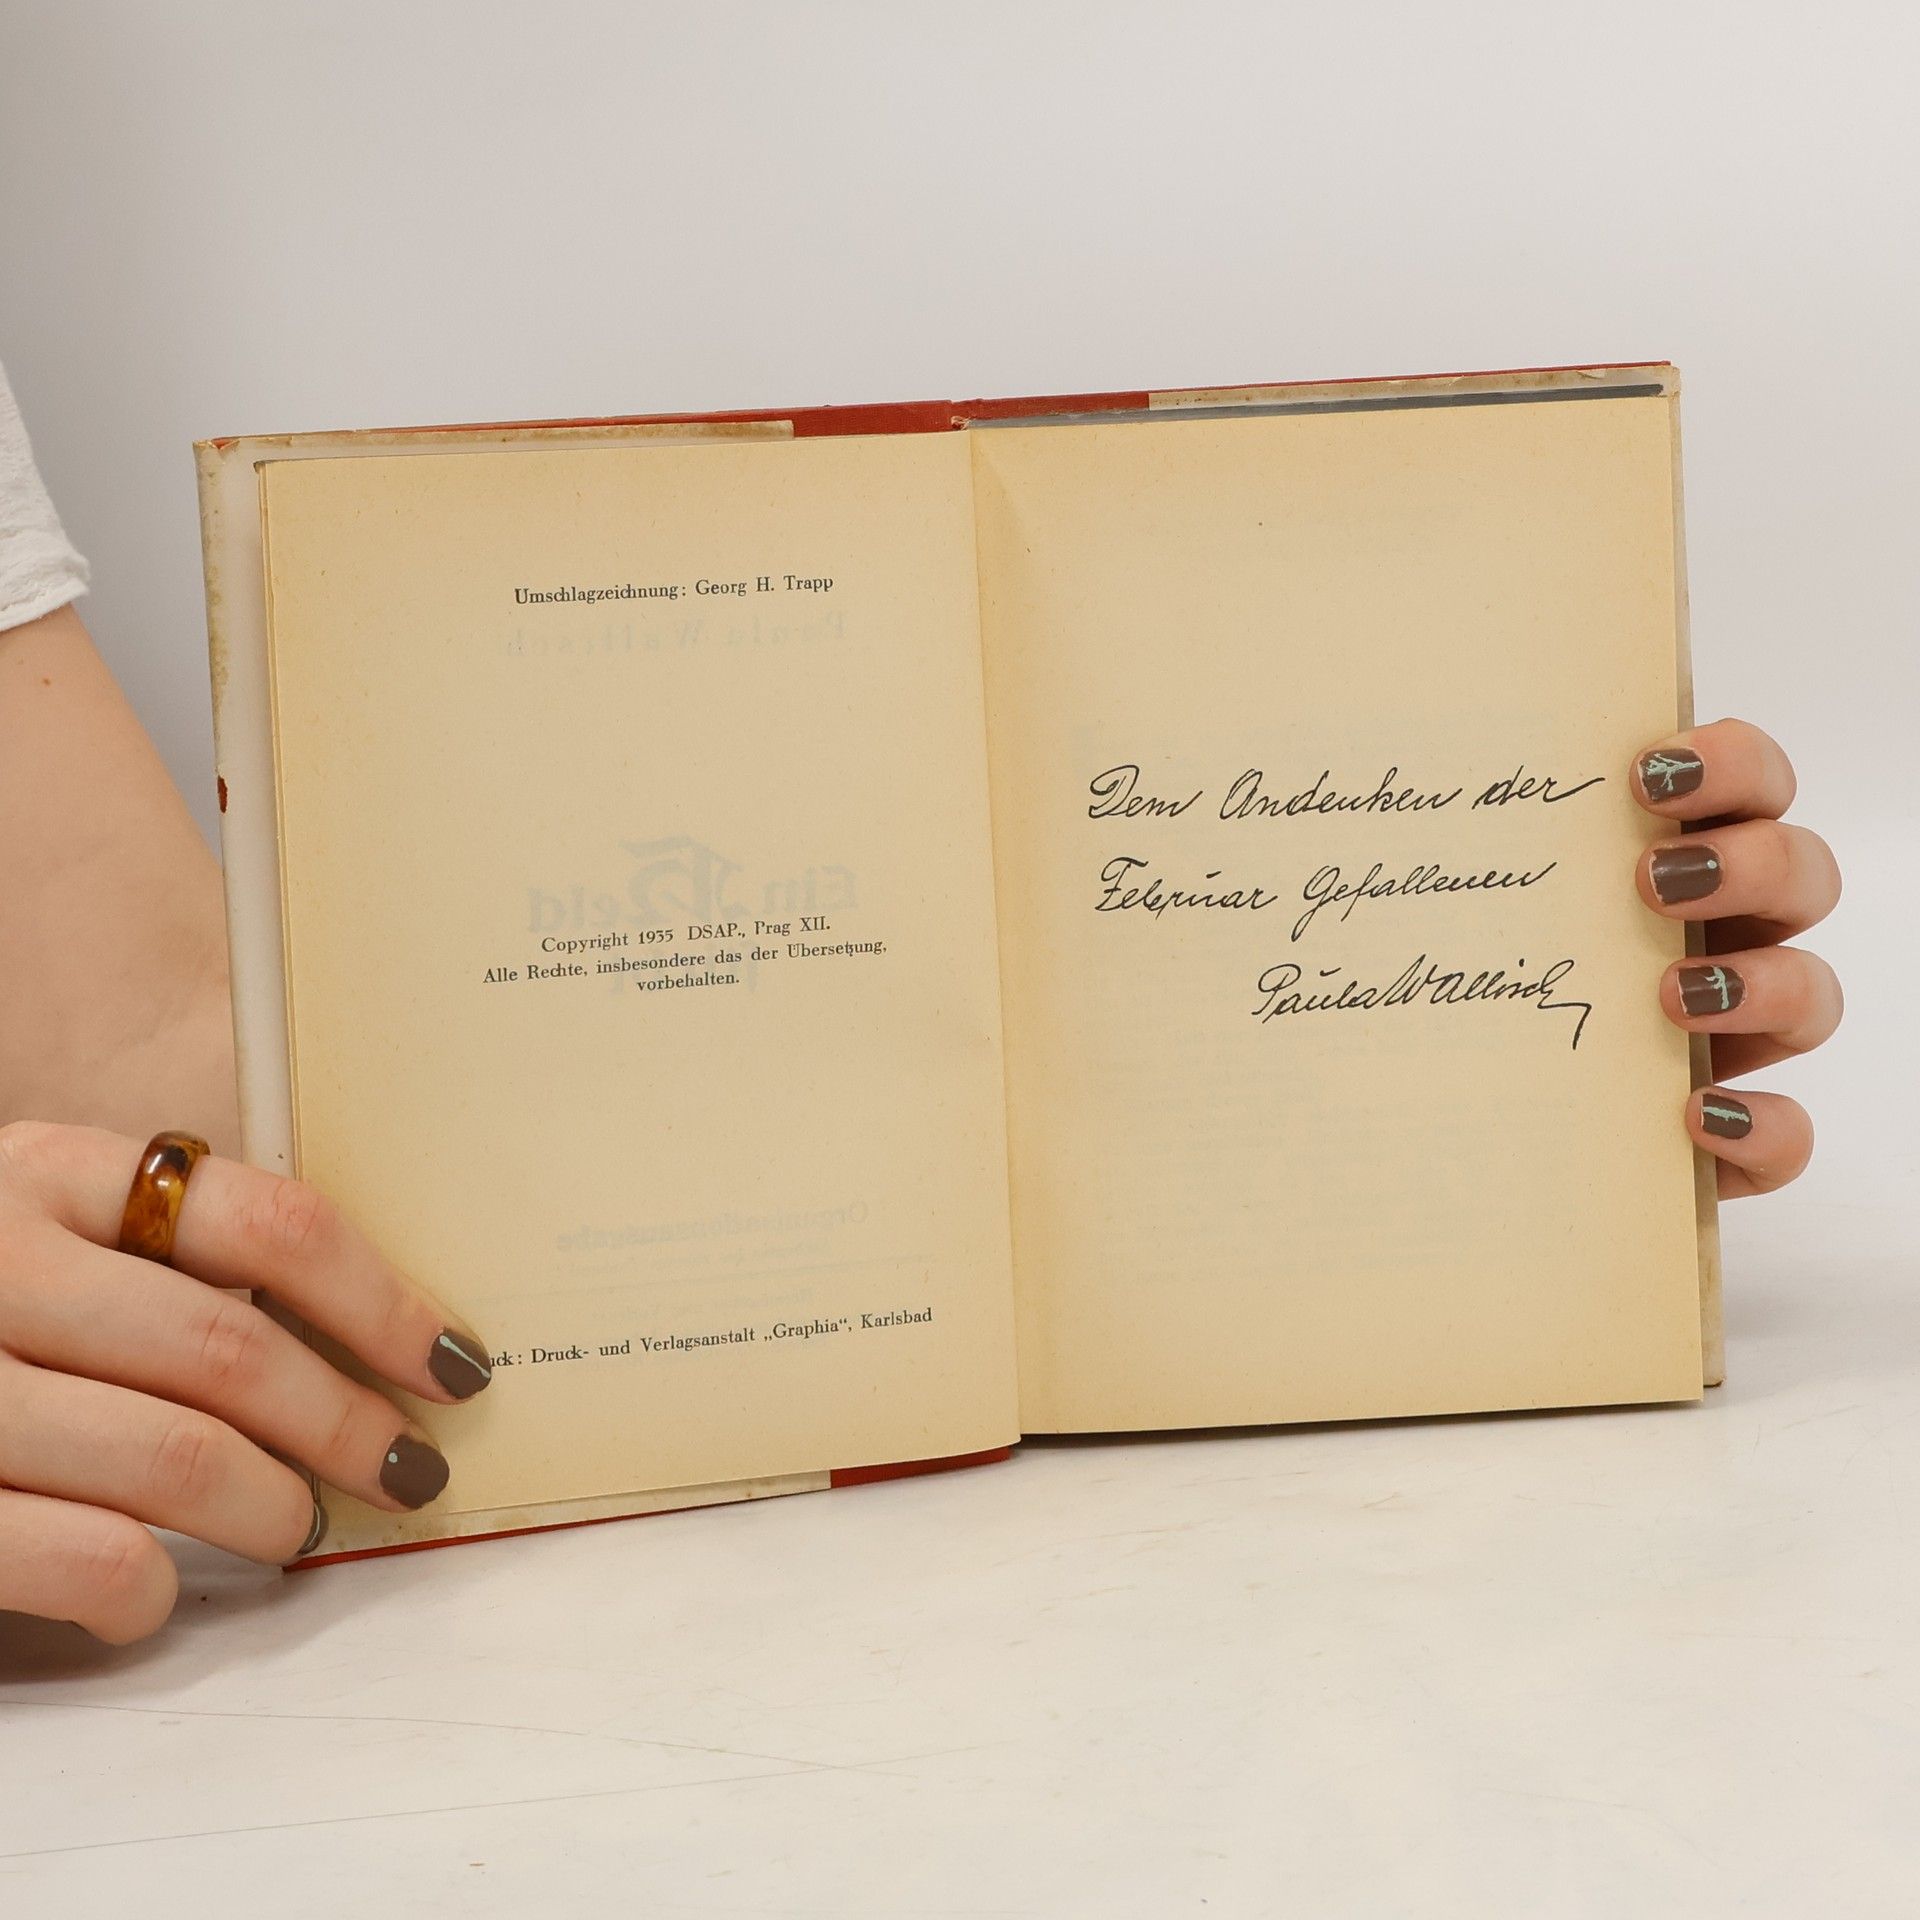 Umschlagzeichnung: Georg H. Trapp
Copyright 1935 DSAP., Prag XII.
Alle Rechte, insbesondere das der Übersetzung,
vorbehalten.
uck: Druck- und Verlagsanstalt „Graphia“, Karlsbad
Dem Andenken der
Februar Gefallenen
Paula Wallisch